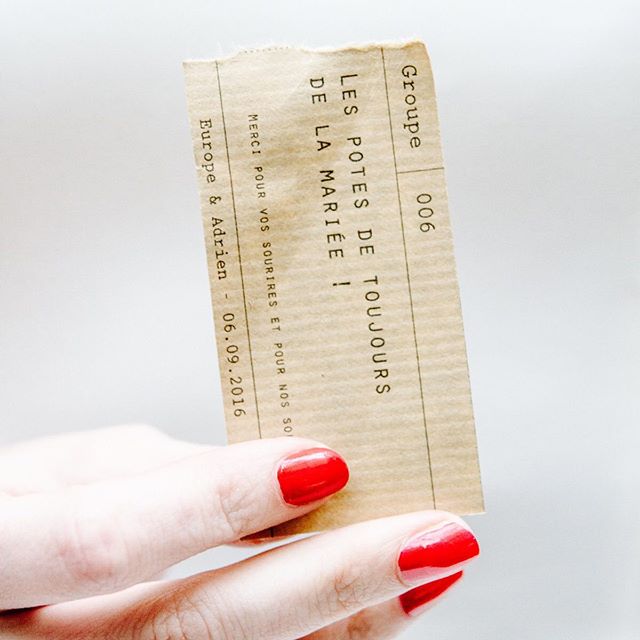 Groupe 006
LES POTES DE TOUJOURS
DE LA MARIÉE !
MERCI POUR VOS SOURIRES ET POUR NOS
Europe & Adrien - 06.09.2016